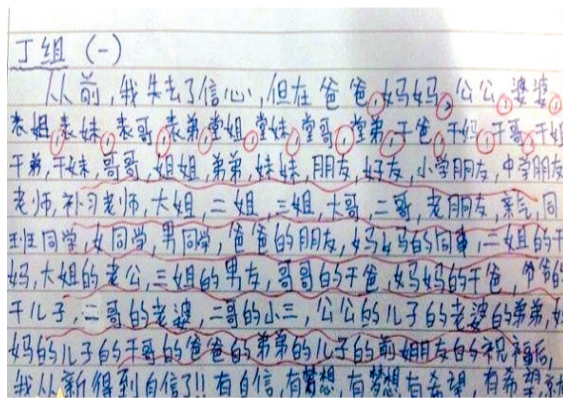 丁组（一）
从前,我失去了信心,但在爸爸,妈妈,公公,婆婆,
表姐,表妹,表哥,表弟,堂姐,堂妹,堂哥,堂弟,干爸,干妈,干哥,干姐
干弟,干妹,哥哥,姐姐,弟弟,妹妹,朋友,好友,小学朋友,中学朋友
老师,补习老师,大姐,二姐,三姐,大哥,二哥,老朋友,亲戚,同
班同学,女同学,男同学,爸爸的朋友,妈妈的同事,二姐的干
妈,大姐的老公,三姐的男友,哥哥的干爸,妈妈的干爸,爸爸的
干儿子,二哥的老婆,二哥的小三,公公的儿子的老婆的弟弟,妈
妈的儿子的干哥的爸爸的弟弟的儿子的前朋友的祝福后,
我从新得到自信了!!有自信,有梦想,有梦想有希望,有希望,